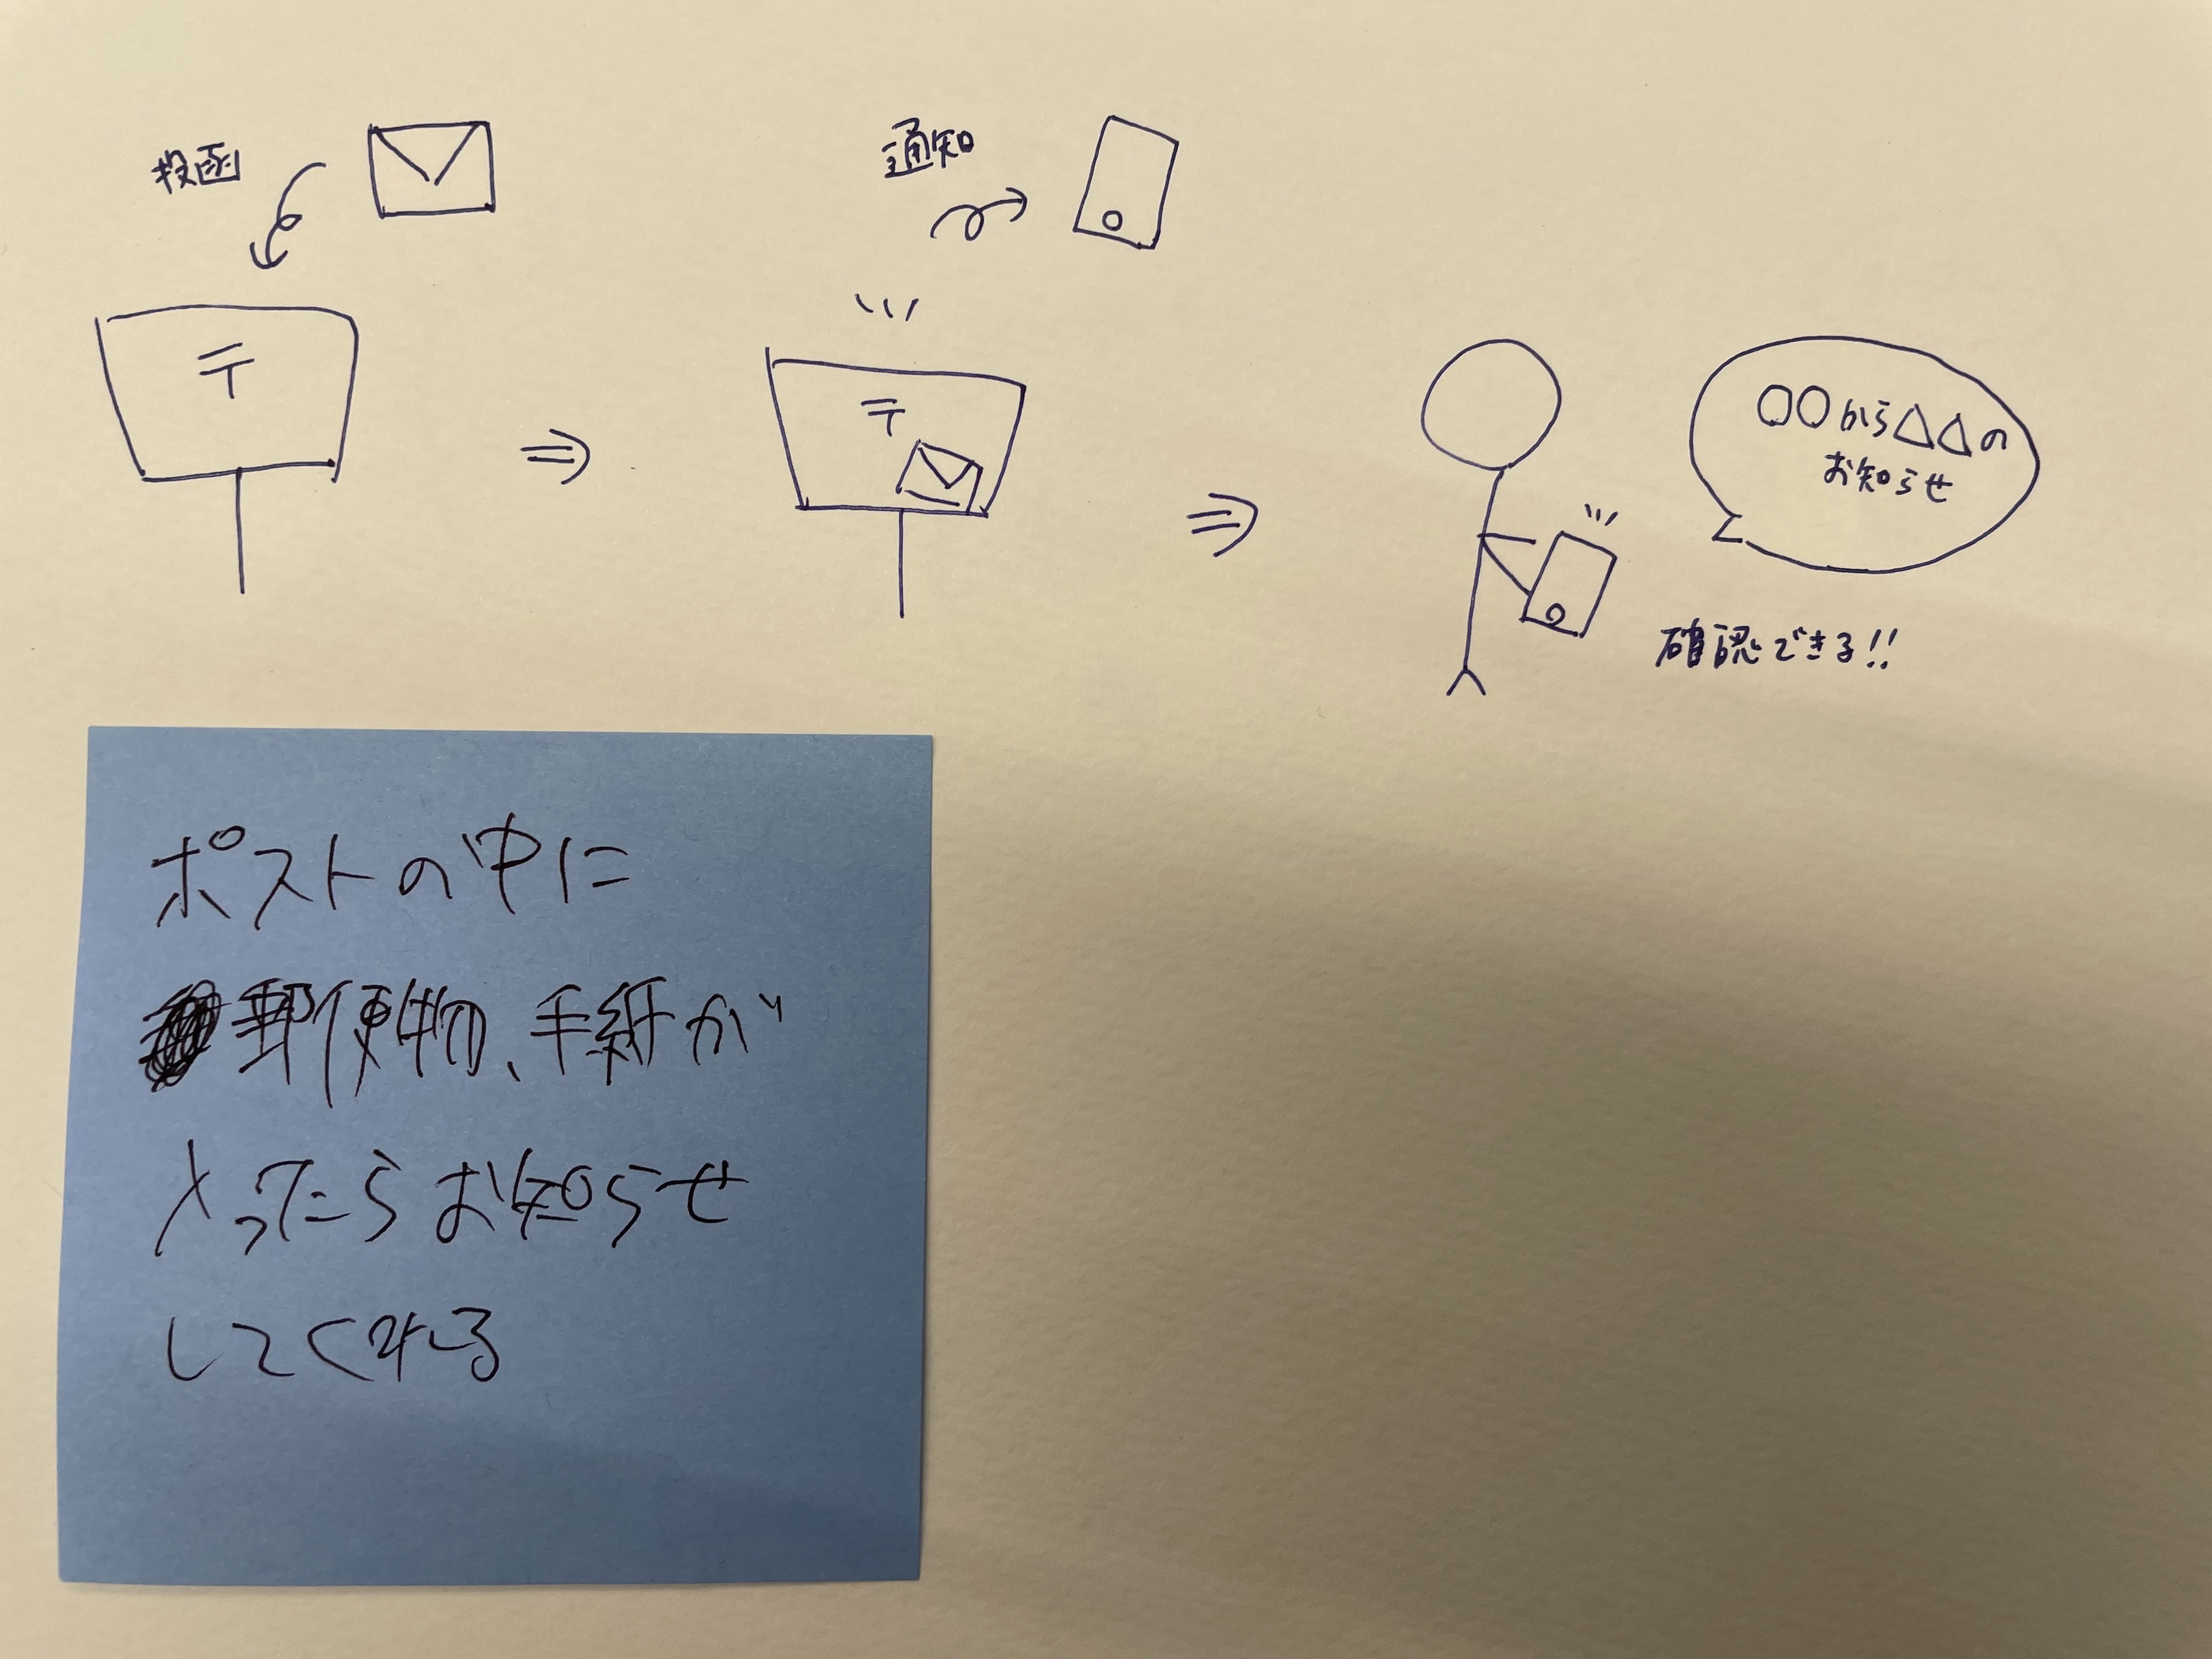 投函
〒
通知
〒
○○から△△の
お知らせ
確認できる!!
ポストの中に
郵便物、手紙が
入ったらお知らせ
してくれる